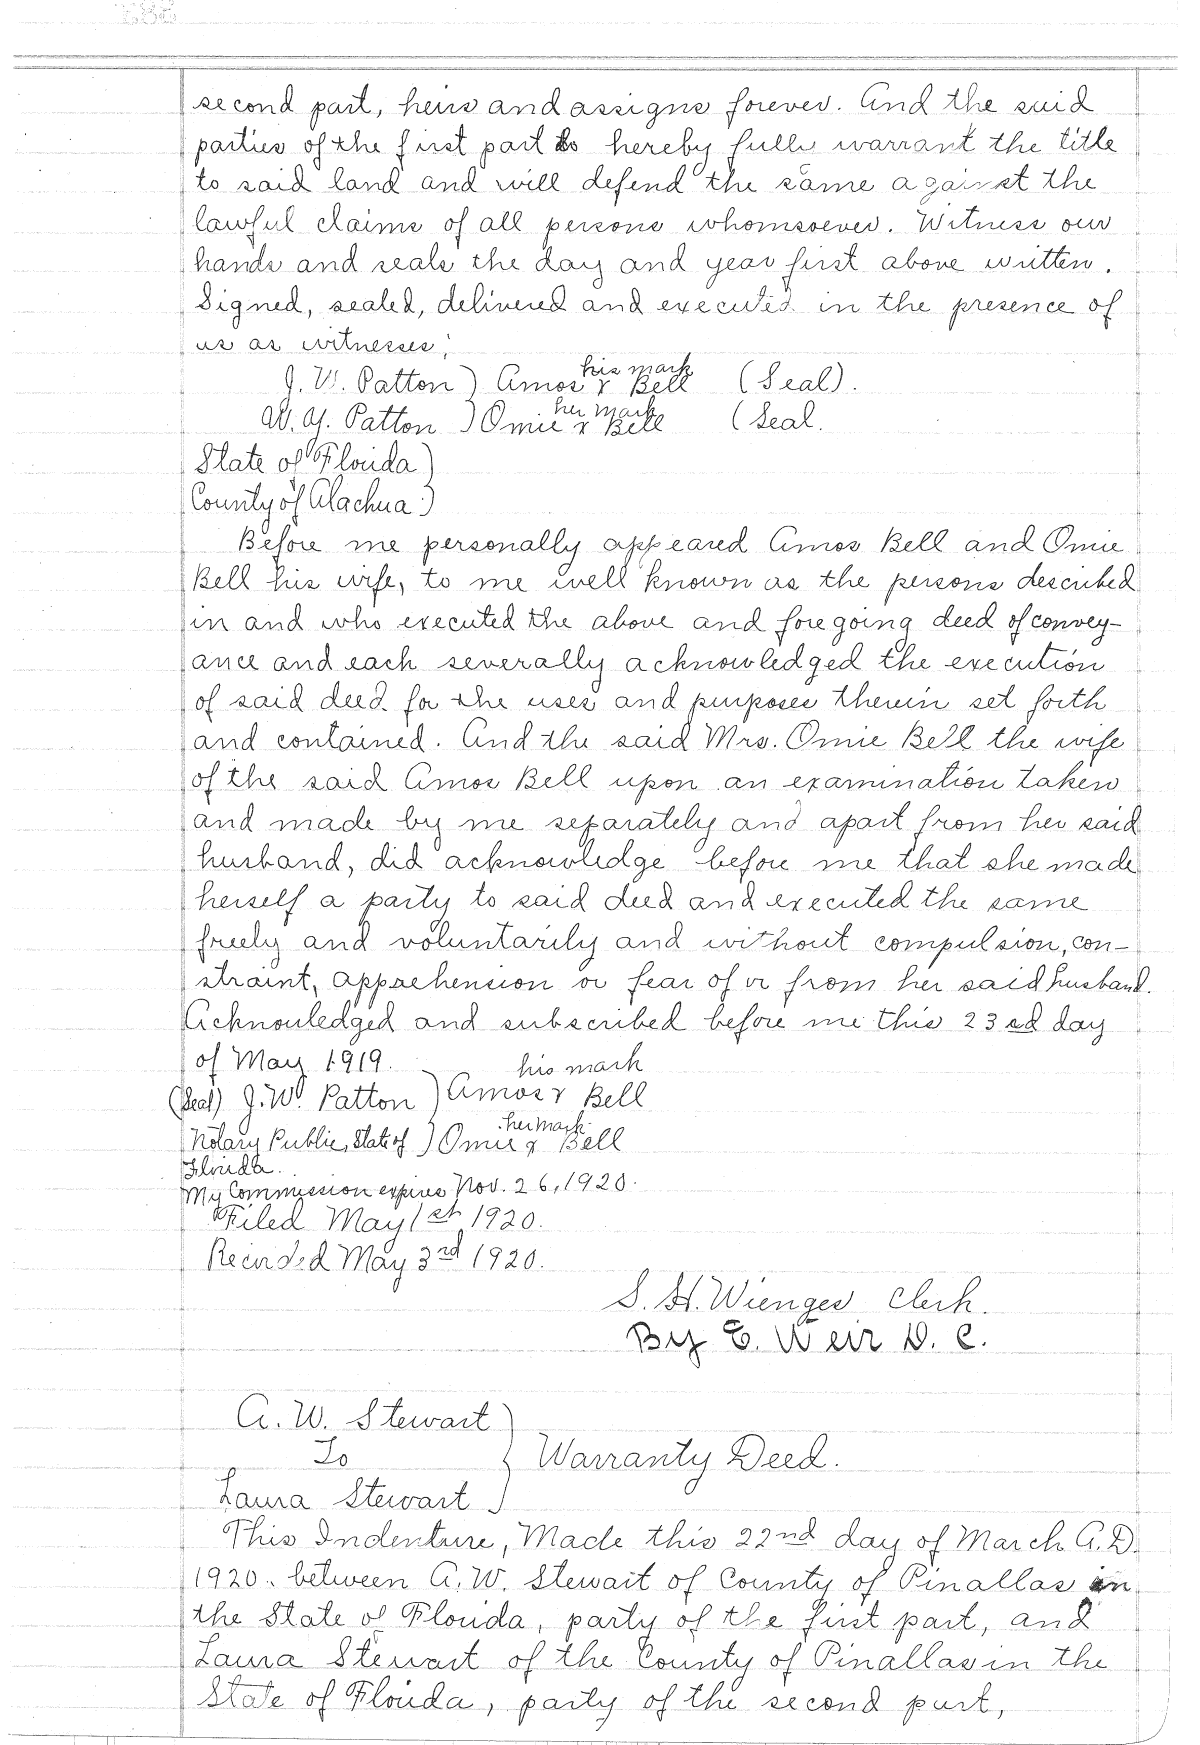 second part, heirs and assigns forever. And the said
parties of the first part do hereby fully warrant the title
to said land and will defend the same against the
lawful claims of all persons whomsoever. Witness our
hands and seals the day and year first above written.
Signed, sealed, delivered and executed in the presence of
us as witnesses;
his mark
J. W. Patton ) Amos x Bell (Seal).
her mark
W. Y. Patton ) Omie x Bell (Seal.
State of Florida )
County of Alachua )
Before me personally appeared Amos Bell and Omie
Bell his wife, to me well known as the persons described
in and who executed the above and foregoing deed of convey-
ance and each severally acknowledged the execution
of said deed for the uses and purposes therein set forth
and contained. And the said Mrs. Omie Bell the wife
of the said Amos Bell upon an examination taken
and made by me separately and apart from her said
husband, did acknowledge before me that she made
herself a party to said deed and executed the same
freely and voluntarily and without compulsion, con-
straint, apprehension or fear of or from her said husband.
Acknowledged and subscribed before me this 23rd day
of May 1919. his mark
(Seal) J. W. Patton ) Amos x Bell
her mark
Notary Public, State of ) Omie x Bell
Florida.
My Commission expires Nov. 26, 1920.
Filed May 1st 1920.
Recorded May 3rd 1920.
S. H. Wienges Clerk.
By E. Weir D. C.
A. W. Stewart )
To ) Warranty Deed.
Laura Stewart )
This Indenture, Made this 22nd day of March A.D.
1920. between A. W. Stewart of County of Pinallas in
the State of Florida, party of the first part, and
Laura Stewart of the County of Pinallas in the
State of Florida, party of the second part,